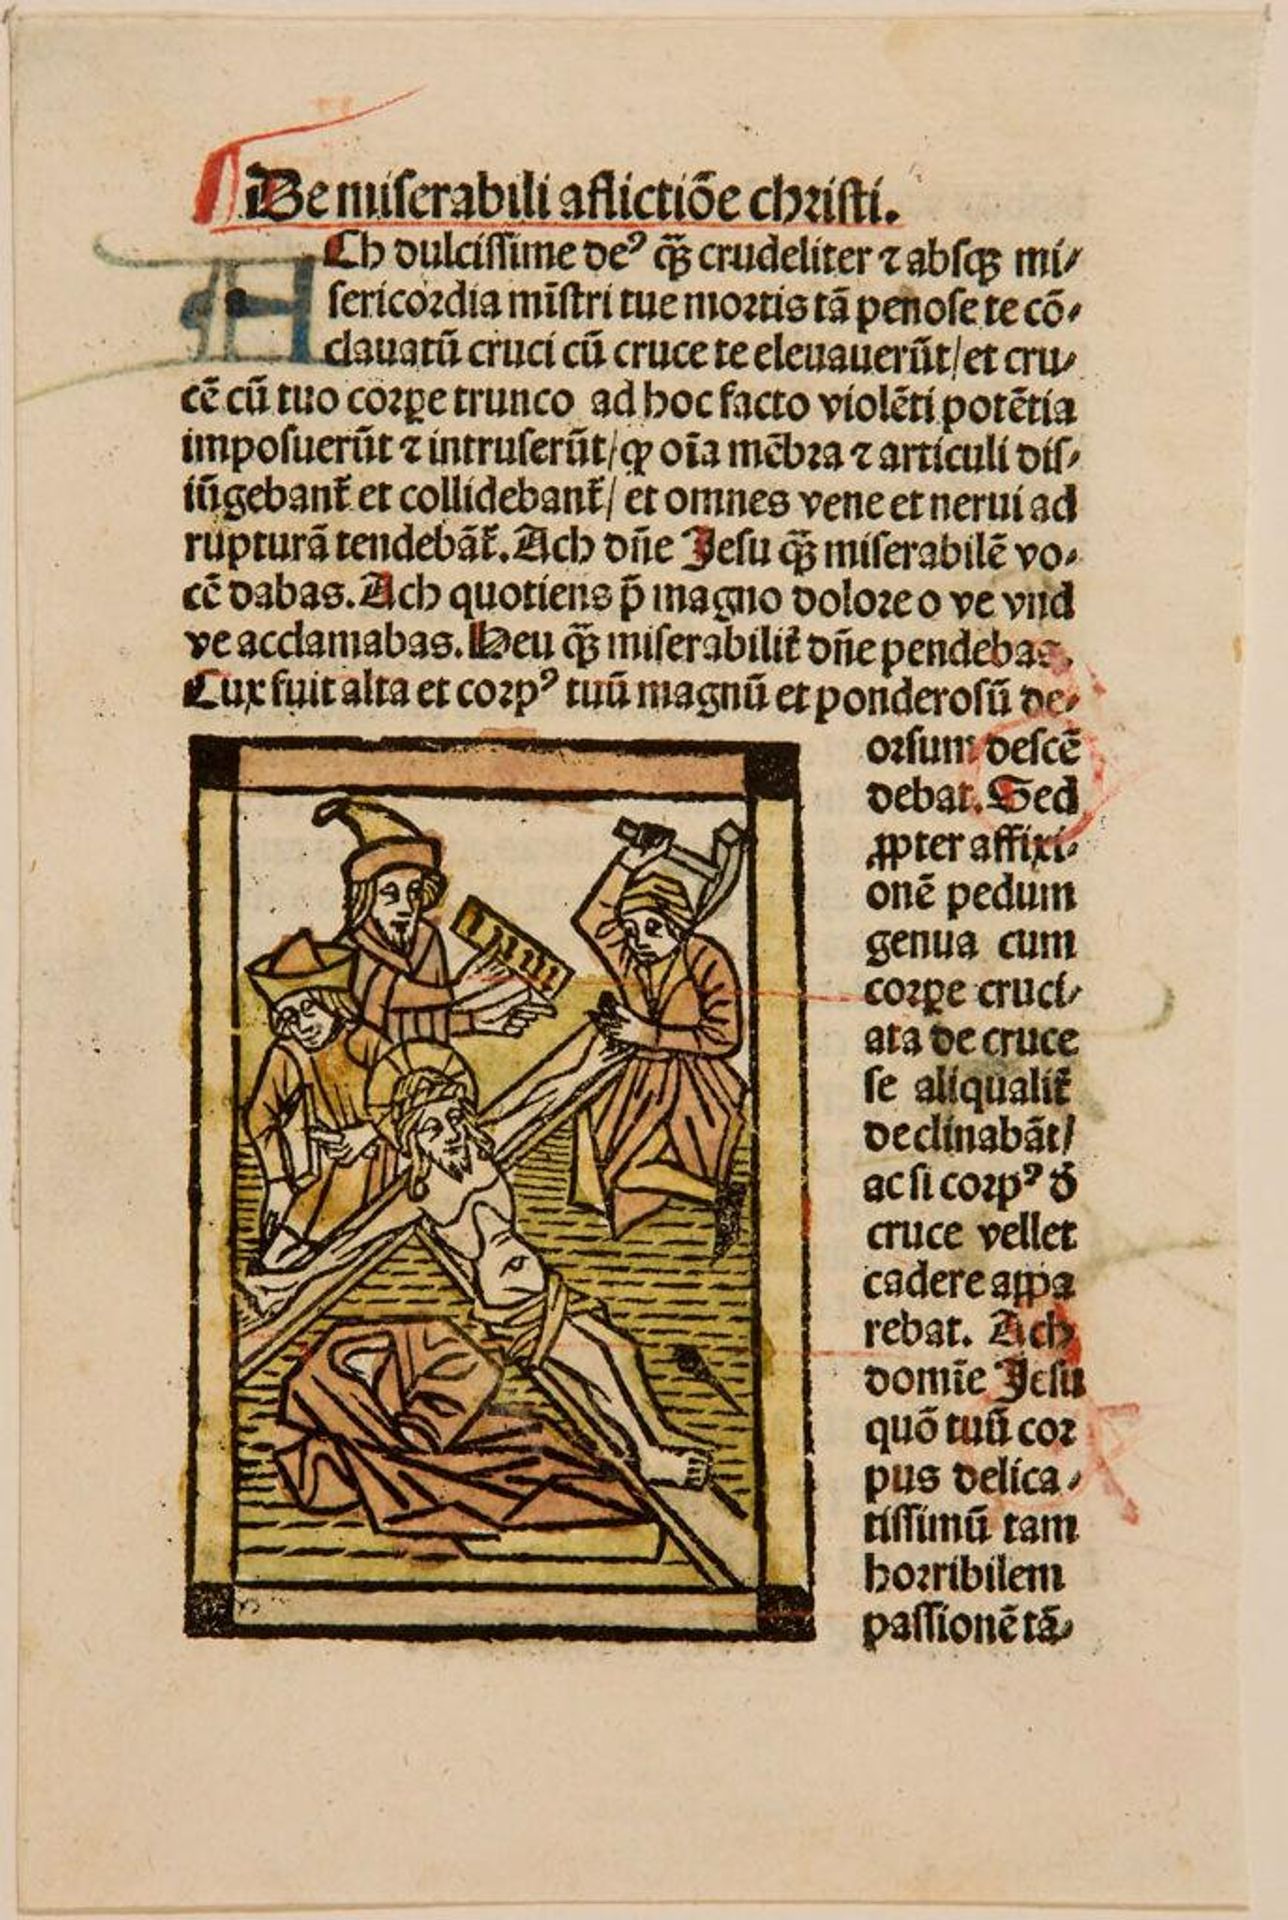 De miserabili aflictiõe christi.
ACh dulcissime de⁹ q̃ꝫ crudeliter ⁊ absqꝫ mi⸗
sericordia mĩstri tue mortis tã penose te cõ⸗
clauatũ cruci cũ cruce te eleuauerũt/ et cru⸗
cẽ cũ tuo corpe trunco ad hoc facto violẽti potẽtia
imposuerũt ⁊ intruserũt/ qꝙ oĩa mẽbra ⁊ articuli dis⸗
iũgebant᷑ et collidebant᷑/ et omnes vene et nerui ad
rupturã tendebãt᷑. Ach dñe Jesu q̃ꝫ miserabilẽ vo⸗
cẽ dabas. Ach quotiens p̃ magno dolore o ve vnd
ve acclamabas. Heu q̃ꝫ miserabilit᷑ dñe pendebas.
Cux fuit alta et corp⁹ tuũ magnũ et ponderosũ de⸗
orsum descẽ
debat. Sed
ꝓpter affixi⸗
onẽ pedum
genua cum
corꝑe cruci⸗
ata de cruce
se aliqualit᷑
declinabãt/
ac si corp⁹ õ
cruce vellet
cadere appa
rebat. Ach
domĩe Jesu
quõ tuũ cor
pus delica⸗
tissimũ tam
horribilem
passionẽ tã⸗